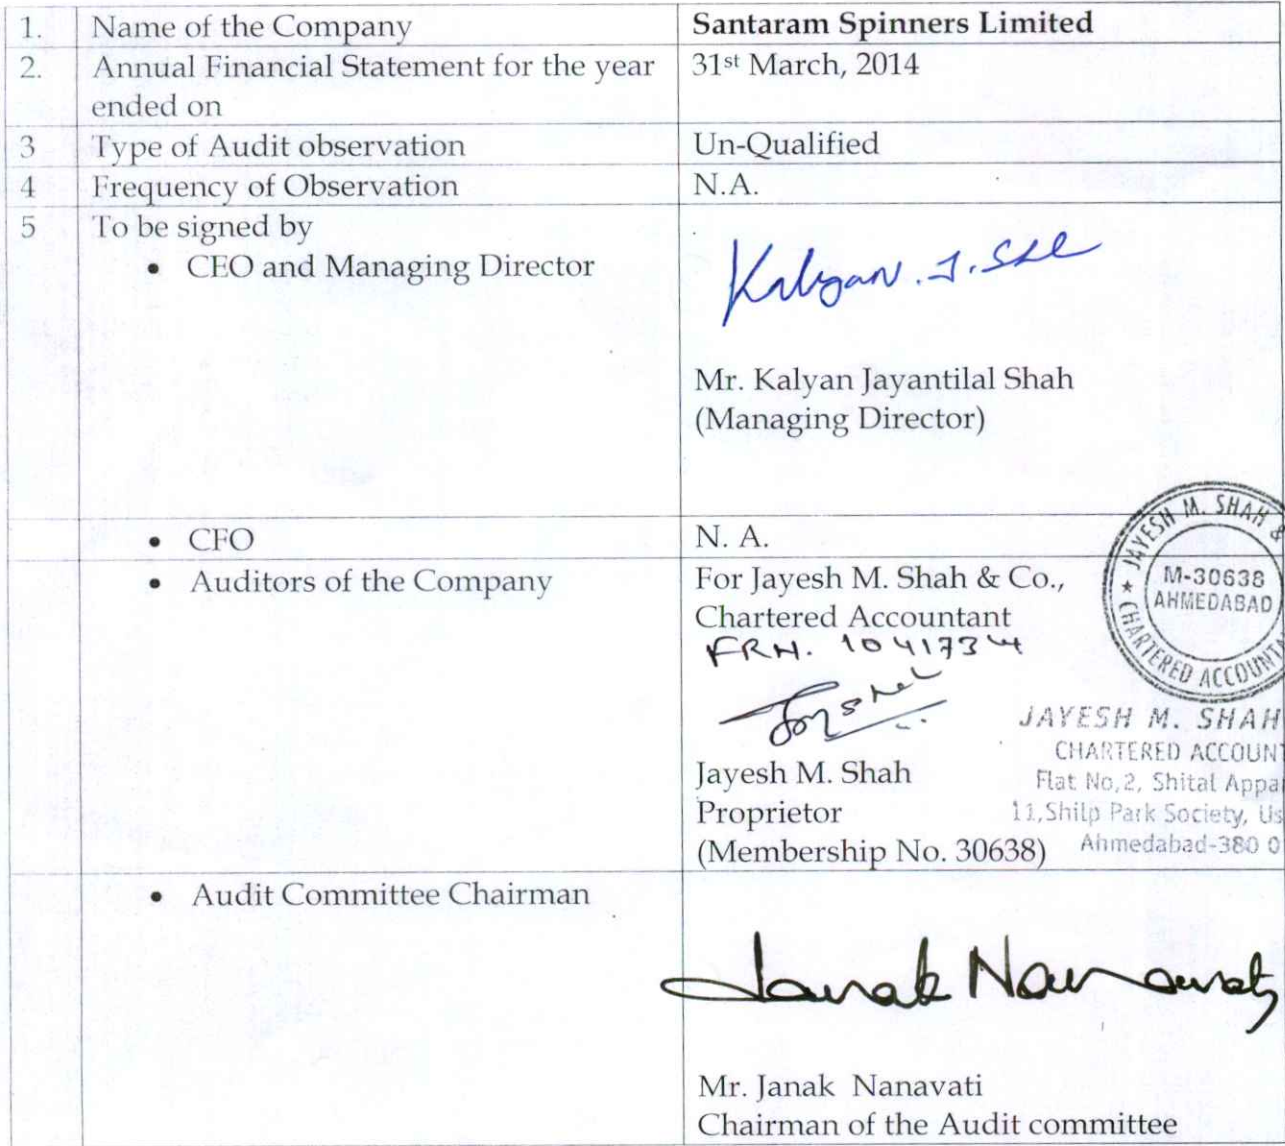 1. Name of the Company Santaram Spinners Limited
2. Annual Financial Statement for the year 31st March, 2014
ended on
3 Type of Audit observation Un-Qualified
4 Frequency of Observation N.A.
5 To be signed by
• CEO and Managing Director
Kalyan. J. Shl
Mr. Kalyan Jayantilal Shah
(Managing Director)
• CFO N. A.
• Auditors of the Company For Jayesh M. Shah & Co.,
Chartered Accountant
FRN. 104173W
JAYESH M. SHAH &
M-30638
AHMEDABAD
★ CHARTERED ACCOUNTA
JAYESH M. SHAH
CHARTERED ACCOUNT
Flat No,2, Shital Appa
11,Shilp Park Society, Us
Ahmedabad-380 0
Jayesh M. Shah
Proprietor
(Membership No. 30638)
• Audit Committee Chairman
Janak Nanavaty
Mr. Janak Nanavati
Chairman of the Audit committee